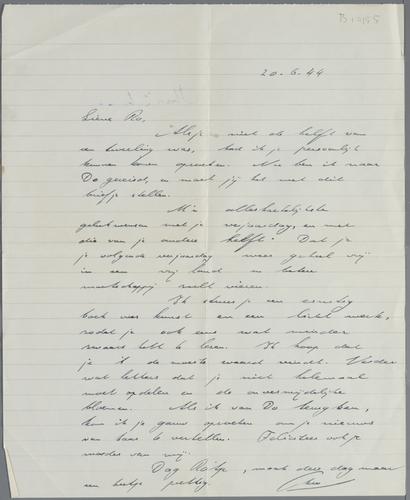 20-6-44
Lieve Ro,
Als je niet de helft van
een tweeling was, had ik je persoonlijk
kunnen komen opzoeken. Nu ben ik naar
Do gereisd, en moet jij het met dit
briefje stellen.
M'n allerhartelijkste
gelukwensen met je verjaardag, en met
die van je andere "helft". Dat je
je volgende verjaardag weer geheel vrij
in een vrij land in betere
maatschappij zult vieren.
Ik stuur je een ernstig
boek over kunst en een licht werk,
zodat je ook eens wat minder
zwaars hebt te lezen. Ik hoop dat
je it de moeite waard vindt. Verder
wat letters dat je niet helemaal
moet opdelen en de onvermijdelijke
bloemen. Als ik van Do terug ben,
kom ik je gauw opzoeken om je nieuws
van haar te vertellen. Feliciteer ook je
moeder van mij.
Dag Ro, maak deze dag maar
een beetje prettig.